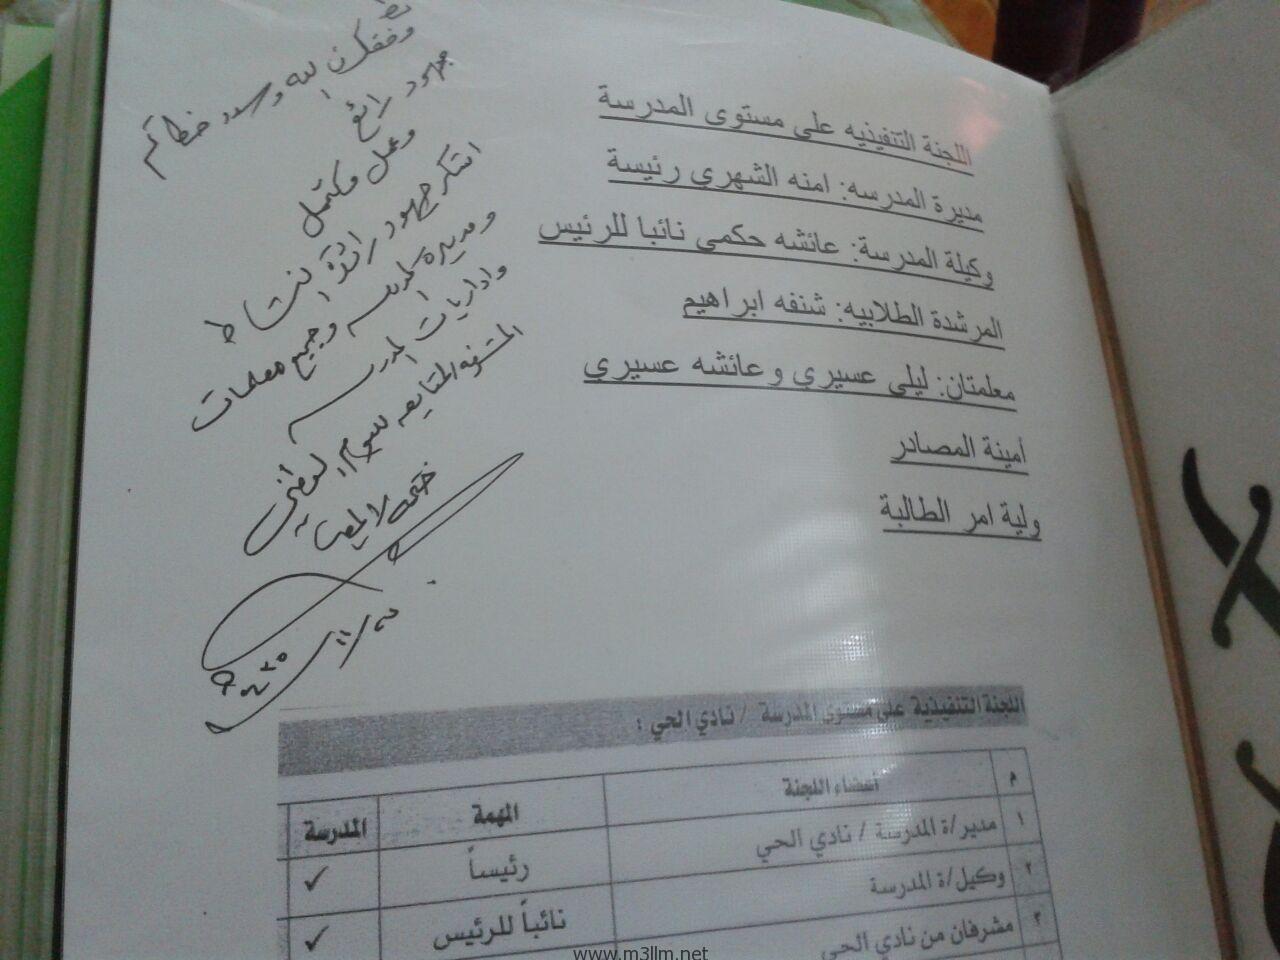 اللجنة التنفيذيه على مستوى المدرسة
مديرة المدرسه: امنه الشهري رئيسة
وكيلة المدرسة: عائشه حكمي نائبا للرئيس
المرشدة الطلابيه: شنفه ابراهيم
معلمتان: ليلى عسيري وعائشه عسيري
أمينة المصادر
ولية امر الطالبة
وفقكن الله وسدد خطاكم
جهود رائع
وعمل مكتمل
اشكر جهود رائدة النشاط
ومديرة المدرسه وجميع معلمات
واداريات المدرسه
المشرفه المتابعه
اللجنة التنفيذية على مستوى المدرسة / نادي الحي :
م أعضاء اللجنة المهمة المدرسة
١ مدير/ة المدرسة / نادي الحي رئيساً ✓
٢ وكيل/ة المدرسة نائباً للرئيس ✓
٣ مشرفان من نادي الحي
www.m3llm.net